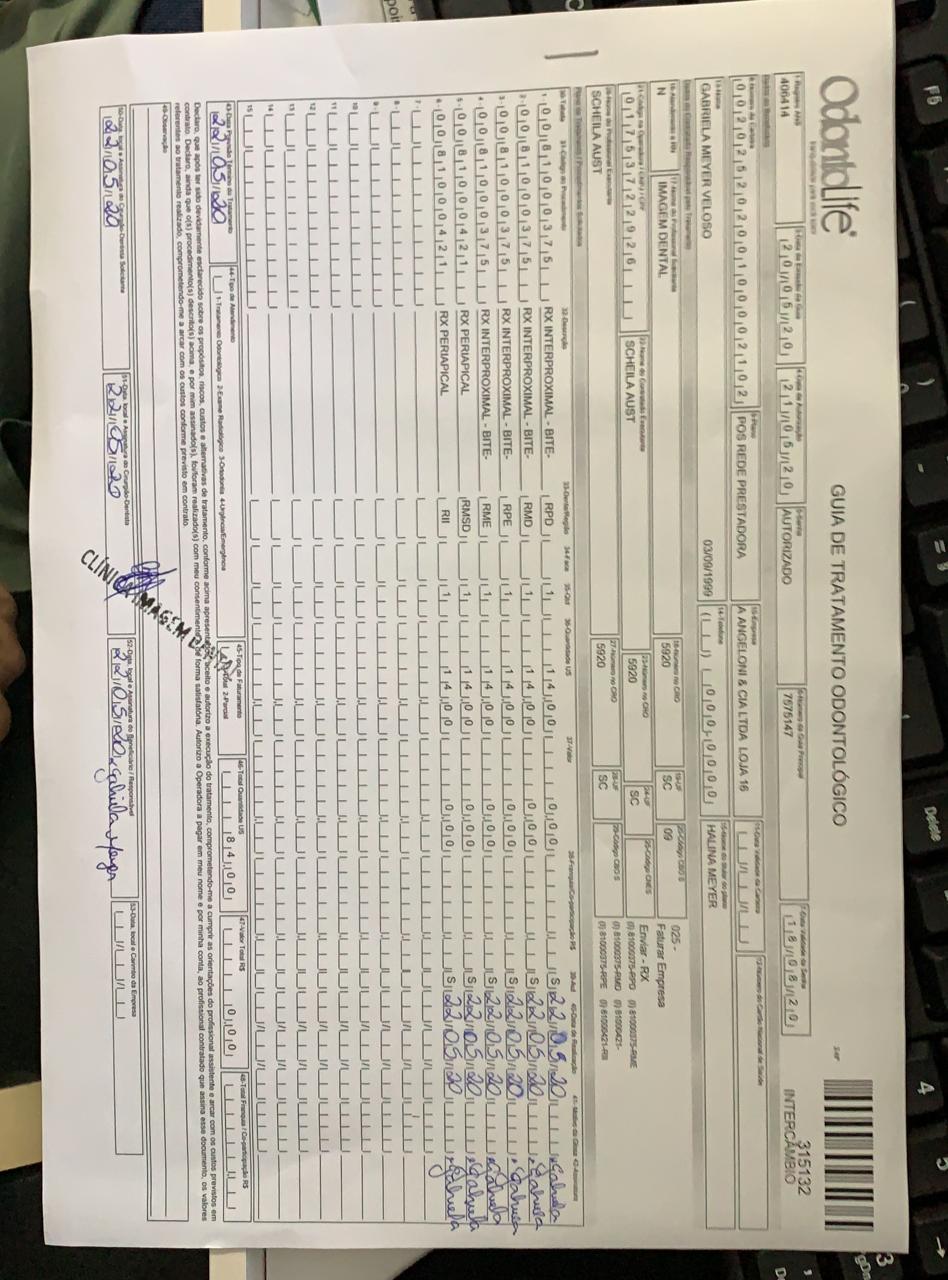 OdontoLife®
GUIA DE TRATAMENTO ODONTOLÓGICO
315132
INTERCÂMBIO
1-Registro ANS
406414
3-Data de Emissão da Guia
20/05/20
4-Data de Autorização
21/05/20
5-Senha
AUTORIZADO
6-Número da Guia Principal
7575147
7-Data Validade da Senha
18/08/20
8-Número da Carteira
00202520200100002102
9-Plano
POS REDE PRESTADORA
10-Empresa
A ANGELONI & CIA LTDA LOJA 16
11-Data Validade da Carteira
12-Número do Cartão Nacional de Saúde
13-Nome
GABRIELA MEYER VELOSO
03/09/1999
14-Telefone
0000-0000
15-Nome do titular do plano
HALINA MEYER
16-Atendimento a RN
N
17-Nome do Profissional Solicitante
IMAGEM DENTAL
18-Número no CRO
5920
19-UF
SC
20-Código CBO S
09
025 -
Faturar Empresa
21-Código na Operadora / CNPJ / CPF
01753722926
22-Nome do Contratado Executante
SCHEILA AUST
23-Número no CRO
5920
24-UF
SC
25-Código CNES
Enviar - RX
(I) 81000375-RPD (I) 81000375-RME
(I) 81000375-RMD (I) 81000421-
(I) 81000375-RPE (I) 81000421-RII
26-Nome do Profissional Executante
SCHEILA AUST
27-Número no CRO
5920
28-UF
SC
29-Código CBO S
Plano de Tratamento / Procedimentos Solicitados
30-Tabela 31-Código do Procedimento 32-Descrição 33-Dente/Região 34-Face 35-Qtd 36-Quantidade US 37-Valor 38-Franquia/Co-participação R$ 39-Aut 40-Data de Realização 41-Motivo da Glosa 42-Assinatura
1- 00 81000375 RX INTERPROXIMAL - BITE- RPD 1 14,00 0,00 S 22/05/20 x Gabriela
2- 00 81000375 RX INTERPROXIMAL - BITE- RMD 1 14,00 0,00 S 22/05/20 x Gabriela
3- 00 81000375 RX INTERPROXIMAL - BITE- RPE 1 14,00 0,00 S 22/05/20 x Gabriela
4- 00 81000375 RX INTERPROXIMAL - BITE- RME 1 14,00 0,00 S 22/05/20 x Gabriela
5- 00 81000421 RX PERIAPICAL RMSD 1 14,00 0,00 S 22/05/20 x Gabriela
6- 00 81000421 RX PERIAPICAL RII 1 14,00 0,00 S 22/05/20 x Gabriela
7-
8-
9-
10
11
12
13
14
15
43-Data Previsão Término do Tratamento
22/05/20
44-Tipo de Atendimento
1-Tratamento Odontológico 2-Exame Radiológico 3-Ortodontia 4-Urgência/Emergência
45-Tipo de Faturamento
2-Parcial
46-Total Quantidade US
84,00
47-Valor Total R$
0,00
48-Total Franquia / Co-participação R$
Declaro, que após ter sido devidamente esclarecido sobre os propósitos, riscos, custos e alternativas de tratamento, conforme acima apresentados, aceito e autorizo a execução do tratamento, comprometendo-me a cumprir as orientações do profissional assistente e arcar com os custos previstos em
contrato. Declaro, ainda que o(s) procedimento(s) descrito(s) acima, e por mim assinado(s), foi/foram realizado(s) com meu consentimento e de forma satisfatória. Autorizo a Operadora a pagar em meu nome e por minha conta, ao profissional contratado que assina esse documento, os valores
referentes ao tratamento realizado, comprometendo-me a arcar com os custos conforme previsto em contrato.
49-Observação
50-Data, local e Assinatura do Cirurgião-Dentista Solicitante
22/05/20
51-Data, local e Assinatura do Cirurgião-Dentista
22/05/20
CLÍNICA IMAGEM DENTAL
52-Data, local e Assinatura do Beneficiário / Responsável
22/05/20 x Gabriela Meyer
53-Data, local e Carimbo da Empresa
F6
Delete
4
3